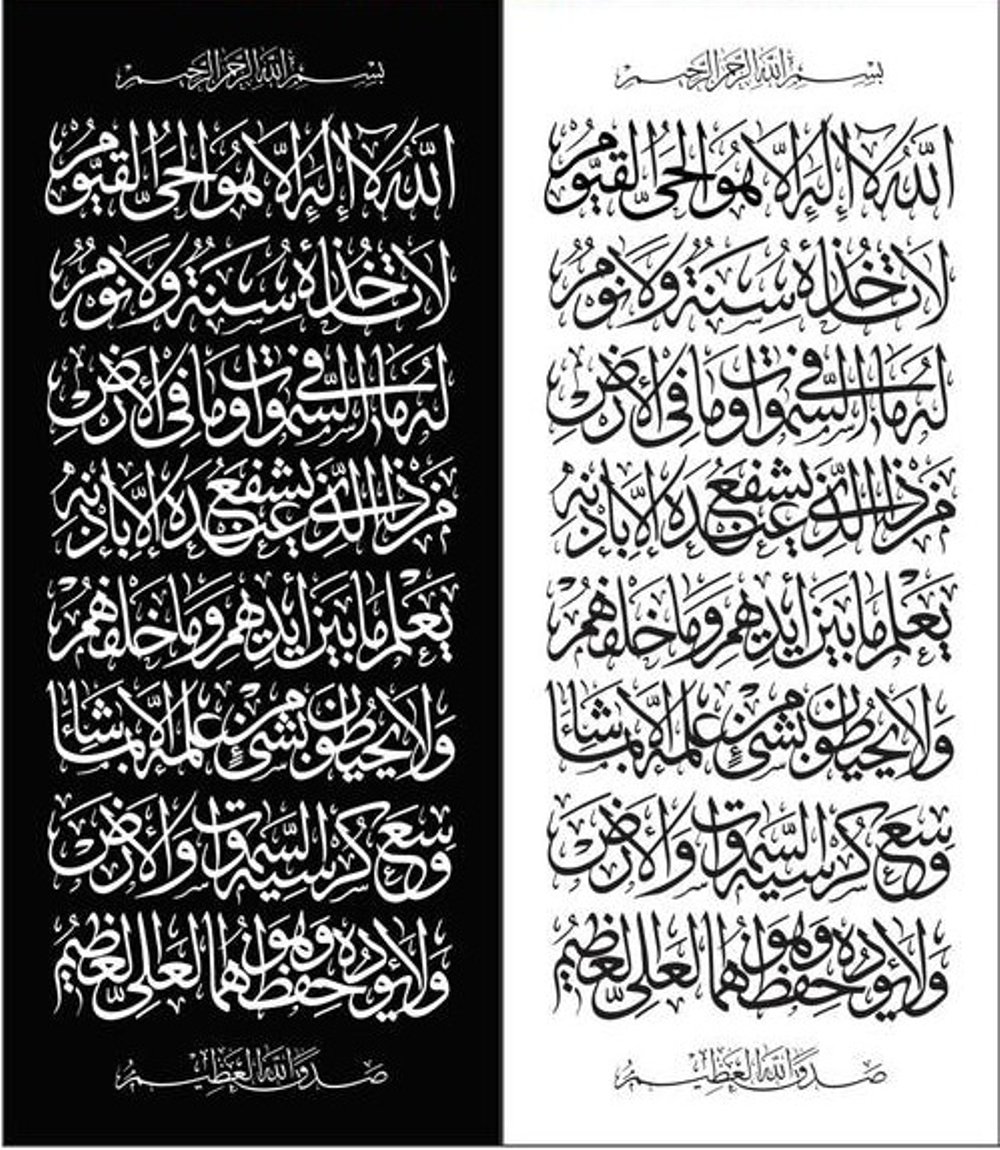 بسم الله الرحمن الرحيم
اللَّهُ لَا إِلَٰهَ إِلَّا هُوَ الْحَيُّ الْقَيُّومُ
لَا تَأْخُذُهُ سِنَةٌ وَلَا نَوْمٌ
لَهُ مَا فِي السَّمَوَاتِ وَمَا فِي الْأَرْضِ
مَنْ ذَا الَّذِي يَشْفَعُ عِنْدَهُ إِلَّا بِإِذْنِهِ
يَعْلَمُ مَا بَيْنَ أَيْدِيهِمْ وَمَا خَلْفَهُمْ
وَلَا يُحِيطُونَ بِشَيْءٍ مِنْ عِلْمِهِ إِلَّا بِمَا شَاءَ
وَسِعَ كُرْسِيُّهُ السَّمَوَاتِ وَالْأَرْضَ
وَلَا يَئُودُهُ حِفْظُهُمَا وَهُوَ الْعَلِيُّ الْعَظِيمُ
صدق الله العظيم
بسم الله الرحمن الرحيم
اللَّهُ لَا إِلَٰهَ إِلَّا هُوَ الْحَيُّ الْقَيُّومُ
لَا تَأْخُذُهُ سِنَةٌ وَلَا نَوْمٌ
لَهُ مَا فِي السَّمَوَاتِ وَمَا فِي الْأَرْضِ
مَنْ ذَا الَّذِي يَشْفَعُ عِنْدَهُ إِلَّا بِإِذْنِهِ
يَعْلَمُ مَا بَيْنَ أَيْدِيهِمْ وَمَا خَلْفَهُمْ
وَلَا يُحِيطُونَ بِشَيْءٍ مِنْ عِلْمِهِ إِلَّا بِمَا شَاءَ
وَسِعَ كُرْسِيُّهُ السَّمَوَاتِ وَالْأَرْضَ
وَلَا يَئُودُهُ حِفْظُهُمَا وَهُوَ الْعَلِيُّ الْعَظِيمُ
صدق الله العظيم